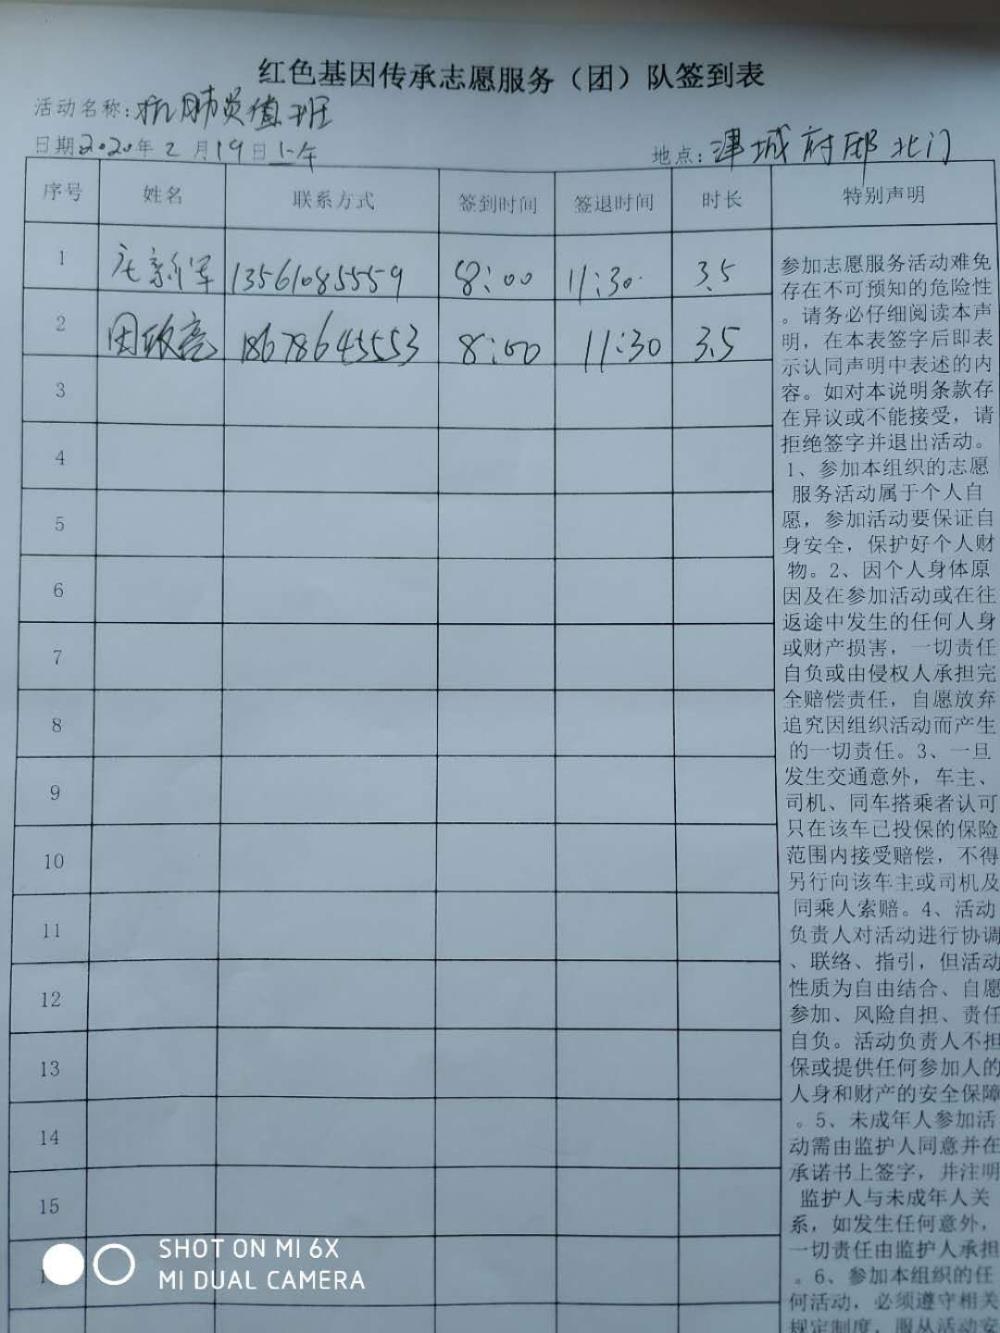 红色基因传承志愿服务（团）队签到表
活动名称：抗肺炎值班
日期2020年2月19日上午
地点：津城府邸北门
序号 姓名 联系方式 签到时间 签退时间 时长 特别声明
1 13561085559 8:00 11:30 3.5
2 18678645553 8:00 11:30 3.5
3
4
5
6
7
8
9
10
11
12
13
14
15
参加志愿服务活动难免
存在不可预知的危险性
。请务必仔细阅读本声
明，在本表签字后即表
示认同声明中表述的内
容。如对本说明条款存
在异议或不能接受，请
拒绝签字并退出活动。
1、参加本组织的志愿
服务活动属于个人自
愿，参加活动要保证自
身安全，保护好个人财
物。2、因个人身体原
因及在参加活动或在往
返途中发生的任何人身
或财产损害，一切责任
自负或由侵权人承担完
全赔偿责任，自愿放弃
追究因组织活动而产生
的一切责任。3、一旦
发生交通意外，车主、
司机、同车搭乘者认可
只在该车已投保的保险
范围内接受赔偿，不得
另行向该车主或司机及
同乘人索赔。4、活动
负责人对活动进行协调
、联络、指引，但活动
性质为自由结合、自愿
参加、风险自担、责任
自负。活动负责人不担
保或提供任何参加人的
人身和财产的安全保障
。5、未成年人参加活
动需由监护人同意并在
承诺书上签字，并注明
监护人与未成年人关
系，如发生任何意外，
一切责任由监护人承担
。6、参加本组织的任
何活动，必须遵守相关
规定制度，服从活动安
SHOT ON MI 6X
MI DUAL CAMERA